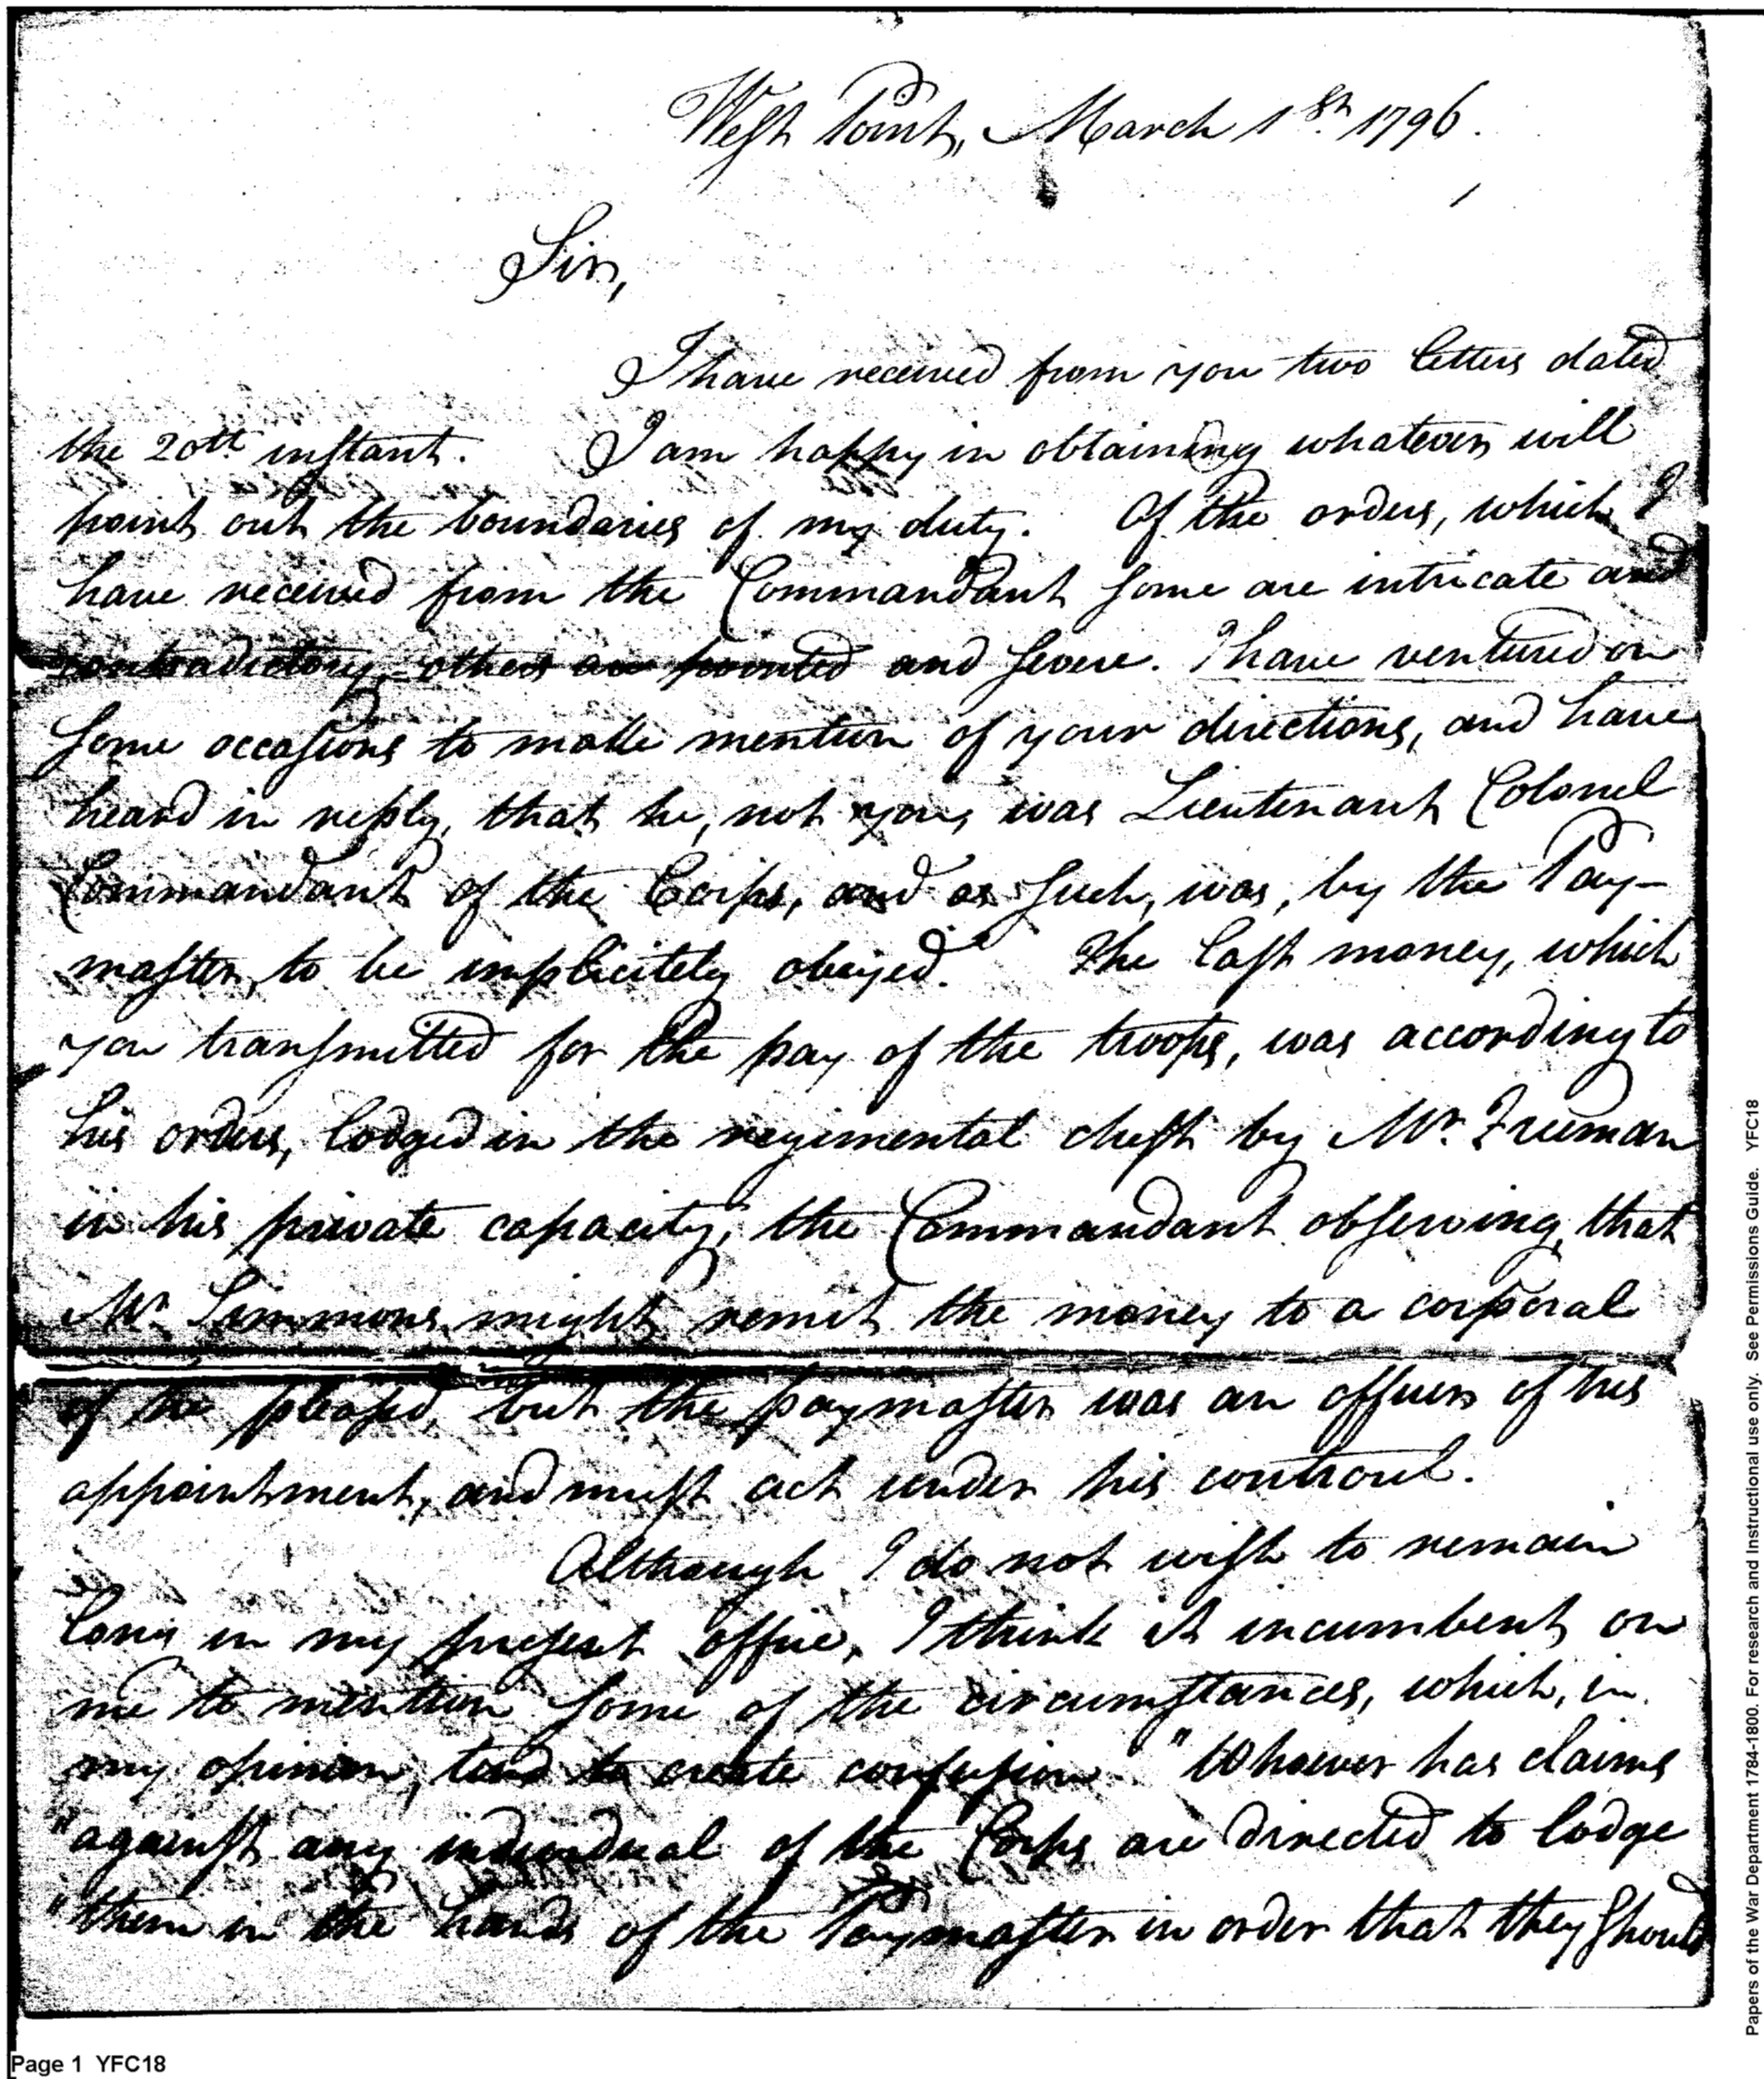 West Point, March 1st. 1796.
Sir,
I have received from you two letters dated
the 20th instant. I am happy in obtaining whatever will
point out the boundaries of my duty. Of the orders, which I
have received from the Commandant some are intricate and
contradictory, others are pointed and severe. I have ventured on
some occasions to make mention of your directions, and have
heard in reply, that he, not you, was Lieutenant Colonel
Commandant of the Corps, and as such, was, by the Pay-
master, to be implicitely obeyed. The last money, which
you transmitted for the pay of the troops, was according to
his orders, lodged in the regimental chest by Mr. Freeman
in his private capacity, the Commandant observing, that
Mr. Simmons might remit the money to a corporal
if he pleased, but the paymaster was an officer of his
appointment, and must act under his controul.
Although I do not wish to remain
long in my present office, I think it incumbent on
me to mention some of the circumstances, which, in
my opinion, tend to create confusion. "Whoever has claims
"against any individual of the Corps are directed to lodge
"them in the hands of the Paymaster in order that they should
Page 1 YFC18
Papers of the War Department 1784-1800. For research and instructional use only. See Permissions Guide. YFC18